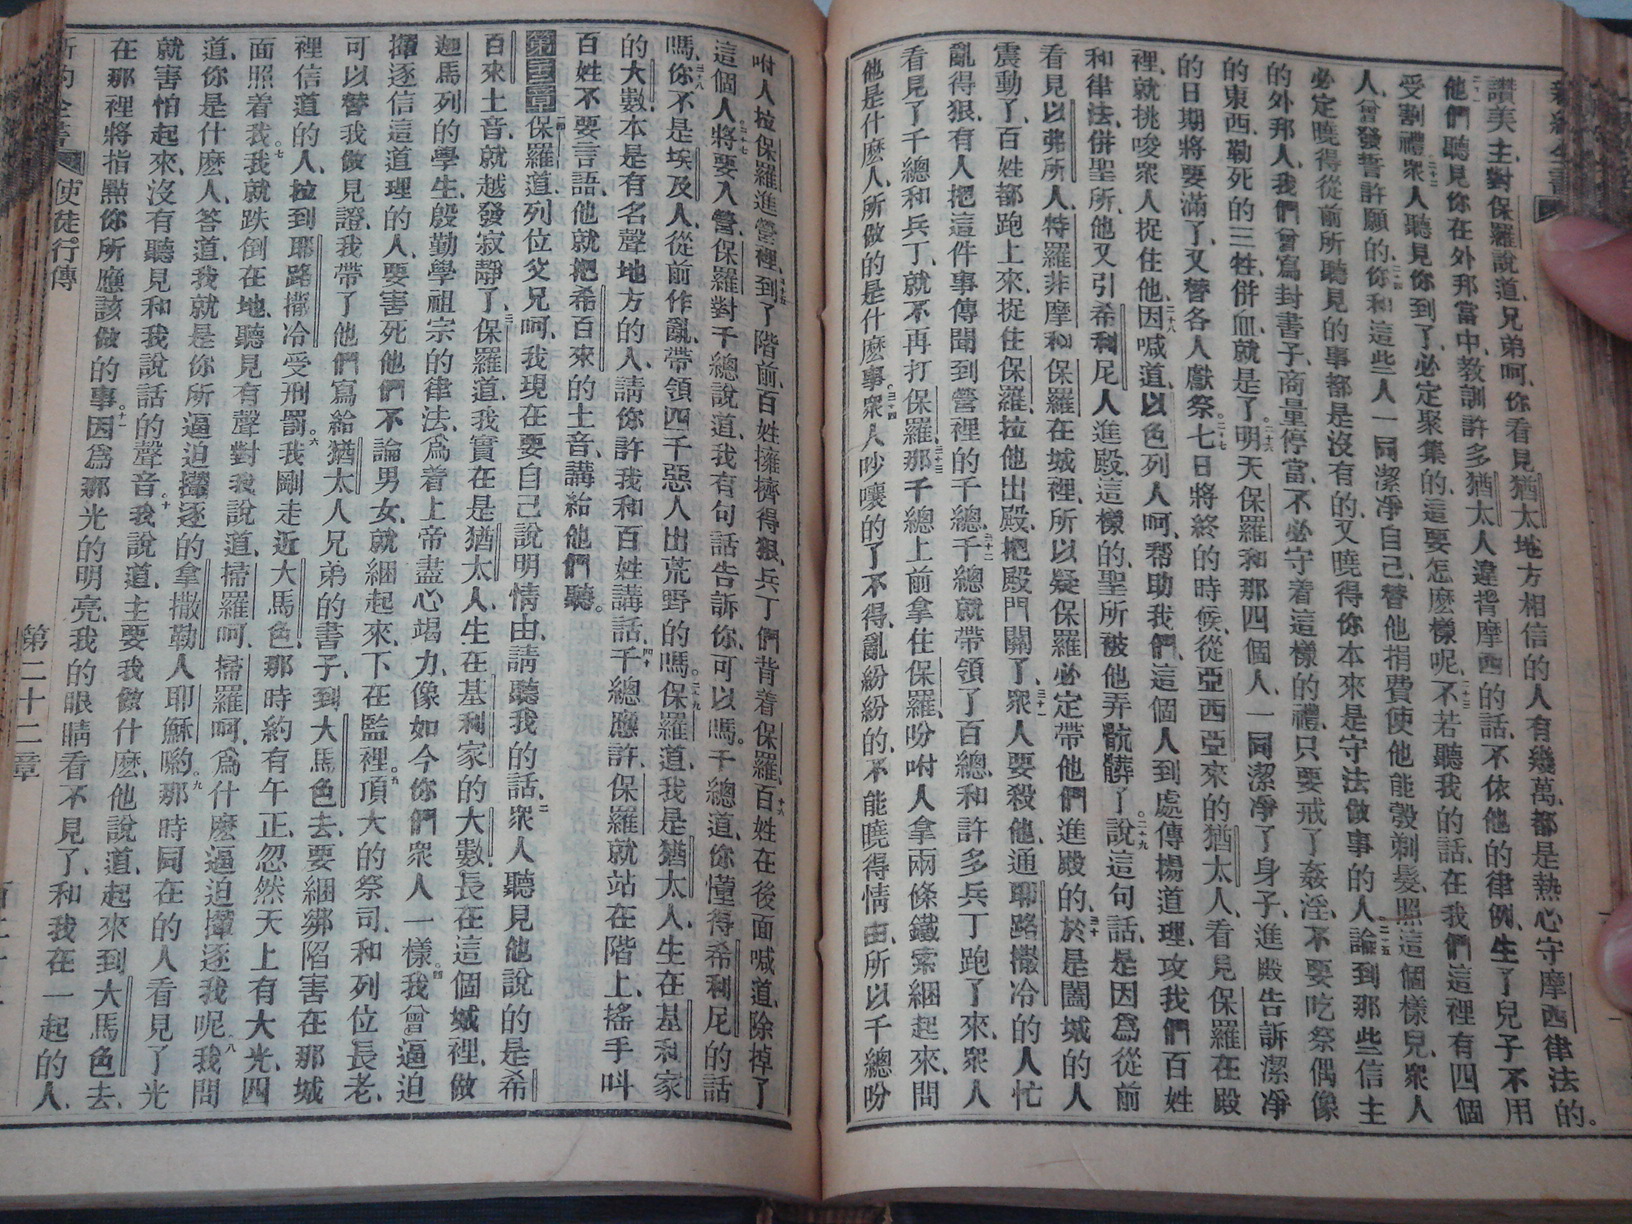 新約全書
讃美主、對保羅說道、兄弟呵、你看見猶太地方相信的人有幾萬、都是熱心守摩西律法的。
二十一他們聽見你在外邦當中、教訓許多猶太人違背摩西的話、不依他的律例、生了兒子不用
受割禮、二十二衆人聽見你到了、必定聚集的、這要怎麽樣呢、二十三不若聽我的話、在我們這裡有四個
人、曾發誓許願的、二十四你和這些人一同潔凈自己、替他捐費使他能彀剃髮、照這個樣兒、衆人
必定曉得從前所聽見的事都是沒有的、又曉得你本來是守法做事的人、二十五論到那些信主
的外邦人、我們曾寫封書子、商量停當、不必守着這樣的禮、只要戒了姦淫、不要吃祭偶像
的東西、勒死的三牲、併血、就是了。二十六明天保羅和那四個人、一同潔凈了身子、進殿告訴潔凈
的日期將要滿了、又替各人獻祭。二十七七日將終的時候、從亞西亞來的猶太人、看見保羅在殿
裡、就挑唆衆人捉住他、二十八因喊道、以色列人呵、帮助我們、這個人到處傳揚道理、攻我們百姓
和律法、併聖所、他又引希利尼人進殿、這樣的聖所被他弄骯髒了。二十九說這句話、是因爲從前
看見以弗所人、特羅非摩和保羅在城裡、所以疑保羅必定帶他們進殿的、三十於是闔城的人
震動了、百姓都跑上來、捉住保羅、拉他出殿、把殿門關了、三十一衆人要殺他、通耶路撒冷的人忙
亂得狠、有人把這件事傳聞到營裡的千總、三十二千總就帶領了百總和許多兵丁跑了來、衆人
看見了千總和兵丁、就不再打保羅、三十三那千總上前拿住保羅、吩咐人拿兩條鐵索綑起來、問
他是什麽人、所做的是什麽事。三十四衆人吵嚷的了不得、亂紛紛的、不能曉得情由、所以千總吩
咐人拉保羅進營裡、三十五到了階前、百姓擁擠得狠、兵丁們背着保羅、三十六百姓在後面喊道、除掉了
這個人、三十七將要入營、保羅對千總說道、我有句話告訴你、可以嗎。千總道、你懂得希利尼的話
嗎、三十八你不是埃及人、從前作亂、帶領四千惡人出荒野的嗎。三十九保羅道、我是猶太人、生在基利家
的大數、本是有名聲地方的人、請你許我和百姓講話、四十千總應許、保羅就站在階上、搖手叫
百姓不要言語、他就把希百來的土音、講給他們聽。
第二十二章一保羅道、列位父兄呵、我現在要自己說明情由、請聽我的話、二衆人聽見他說的是希
百來土音、就越發寂靜了、三保羅道、我實在是猶太人、生在基利家的大數、長在這個城裡、做
迦馬列的學生、殷勤學祖宗的律法、爲着上帝盡心竭力、像如今你們衆人一樣。四我曾逼迫
攆逐信這道理的人、要害死他們、不論男女、就綑起來、下在監裡、五頂大的祭司、和列位長老、
可以替我做見證、我帶了他們寫給猶太人兄弟的書子、到大馬色去、要綑綁陷害在那城
裡信道的人、拉到耶路撒冷受刑罰。六我剛走近大馬色、那時約有午正、忽然天上有大光、四
面照着我、七我就跌倒在地、聽見有聲對我說道、掃羅呵、掃羅呵、爲什麽逼迫攆逐我呢、八我問
道、你是什麽人、答道、我就是你所逼迫攆逐的拿撒勒人耶穌喲、九那時同在的人看見了光
就害怕起來、沒有聽見和我說話的聲音、十我說道、主要我做什麽、他說道、起來到大馬色去、
在那裡將指點你所應該做的事、十一因爲那光的明亮、我的眼睛看不見了、和我在一起的人、
新約全書 使徒行傳 第二十二章